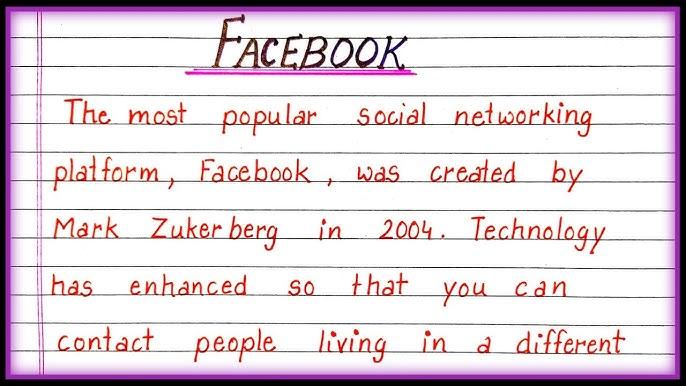 FACEBOOK
The most popular social networking
platform, Facebook, was created by
Mark Zukerberg in 2004. Technology
has enhanced so that you can
contact people living in a different